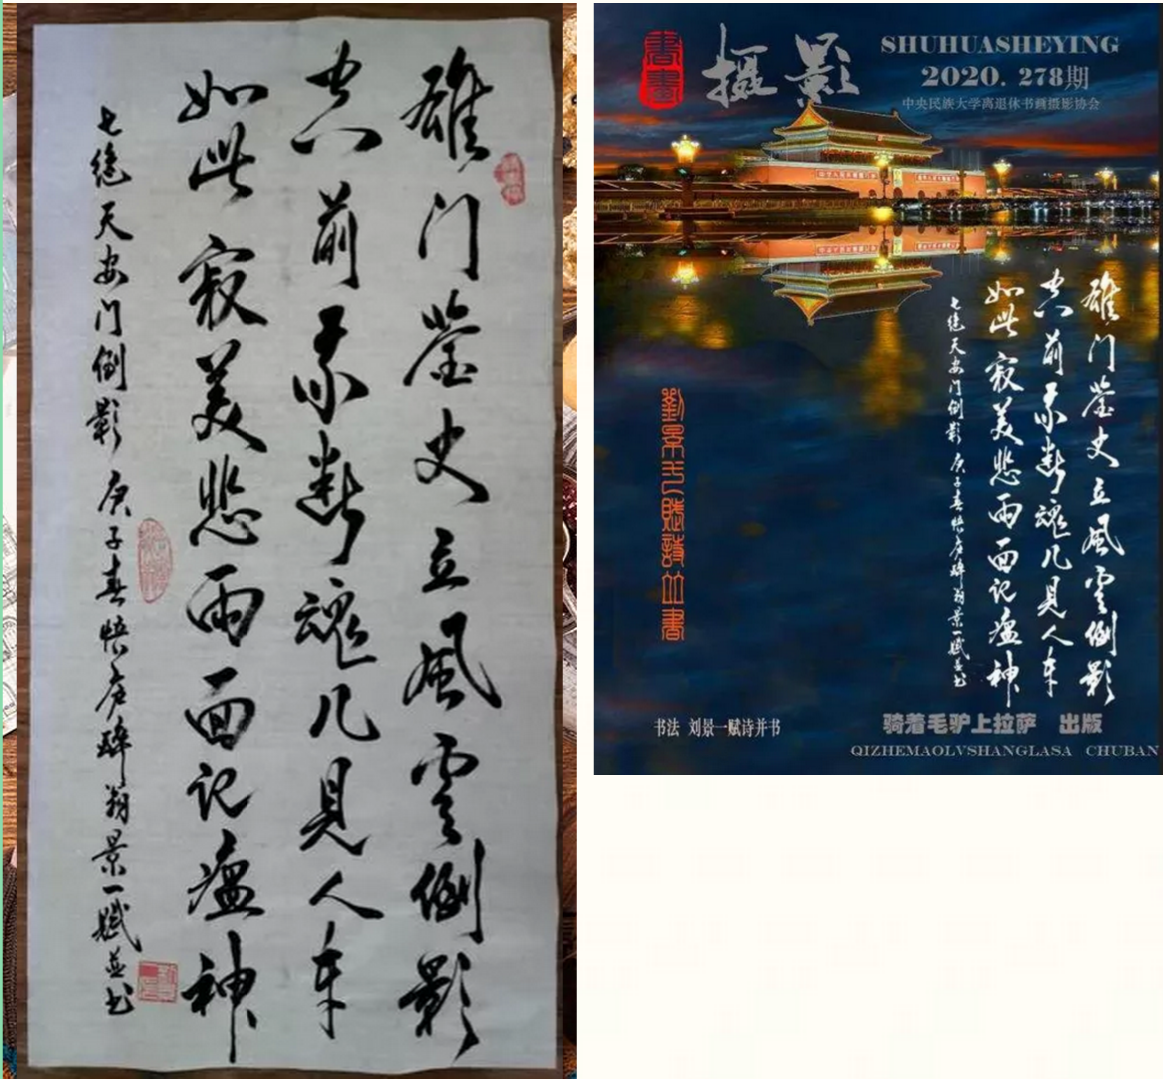 雄门莹史立風雲倒影
前断魂几見人车
如此寂美悲雨面记瘟神
七绝天安门倒影 庚子春醉翁景一赋並书
書畫
摄影
SHUHUASHEYING
2020. 278期
中央民族大学离退休书画摄影协会
雄门莹史立風雲倒影
前断魂几見人车
如此寂美悲雨面记瘟神
七绝天安门倒影 庚子春醉翁景一赋並书
劉景一賦詩並書
书法 刘景一赋诗并书
骑着毛驴上拉萨 出版
QIZHEMAOLVSHANGLASA CHUBAN